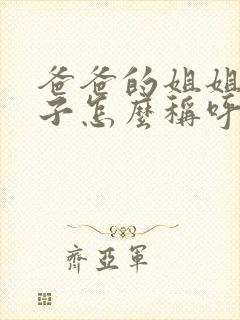 爸爸的姐姐
子怎麼稱呼
齊亞軍